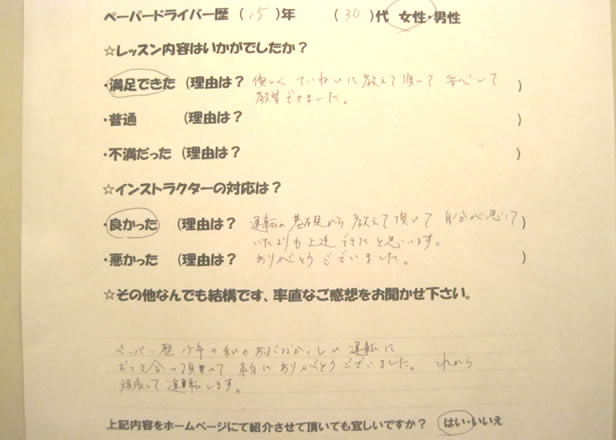 ペーパードライバー歴（15）年　（30）代　女性・男性
☆レッスン内容はいかがでしたか？
・満足できた（理由は？ 優しく ていねいに教えて頂いて 安心して
教習できました。）
・普通　（理由は？　）
・不満だった（理由は？　）
☆インストラクターの対応は？
・良かった　（理由は？ 運転の基礎から教えて頂いて 自分が思って
いたよりも上達できたと思います。）
・悪かった　（理由は？ ありがとうございました。）
☆その他なんでも結構です、率直なご感想をお聞かせ下さい。
ペーパー歴15年の私のあぶなっかしい運転に
おつき合い頂いて本当にありがとうございました。これから
頑張って運転します。
上記内容をホームページにて紹介させて頂いても宜しいですか？　はい・いいえ